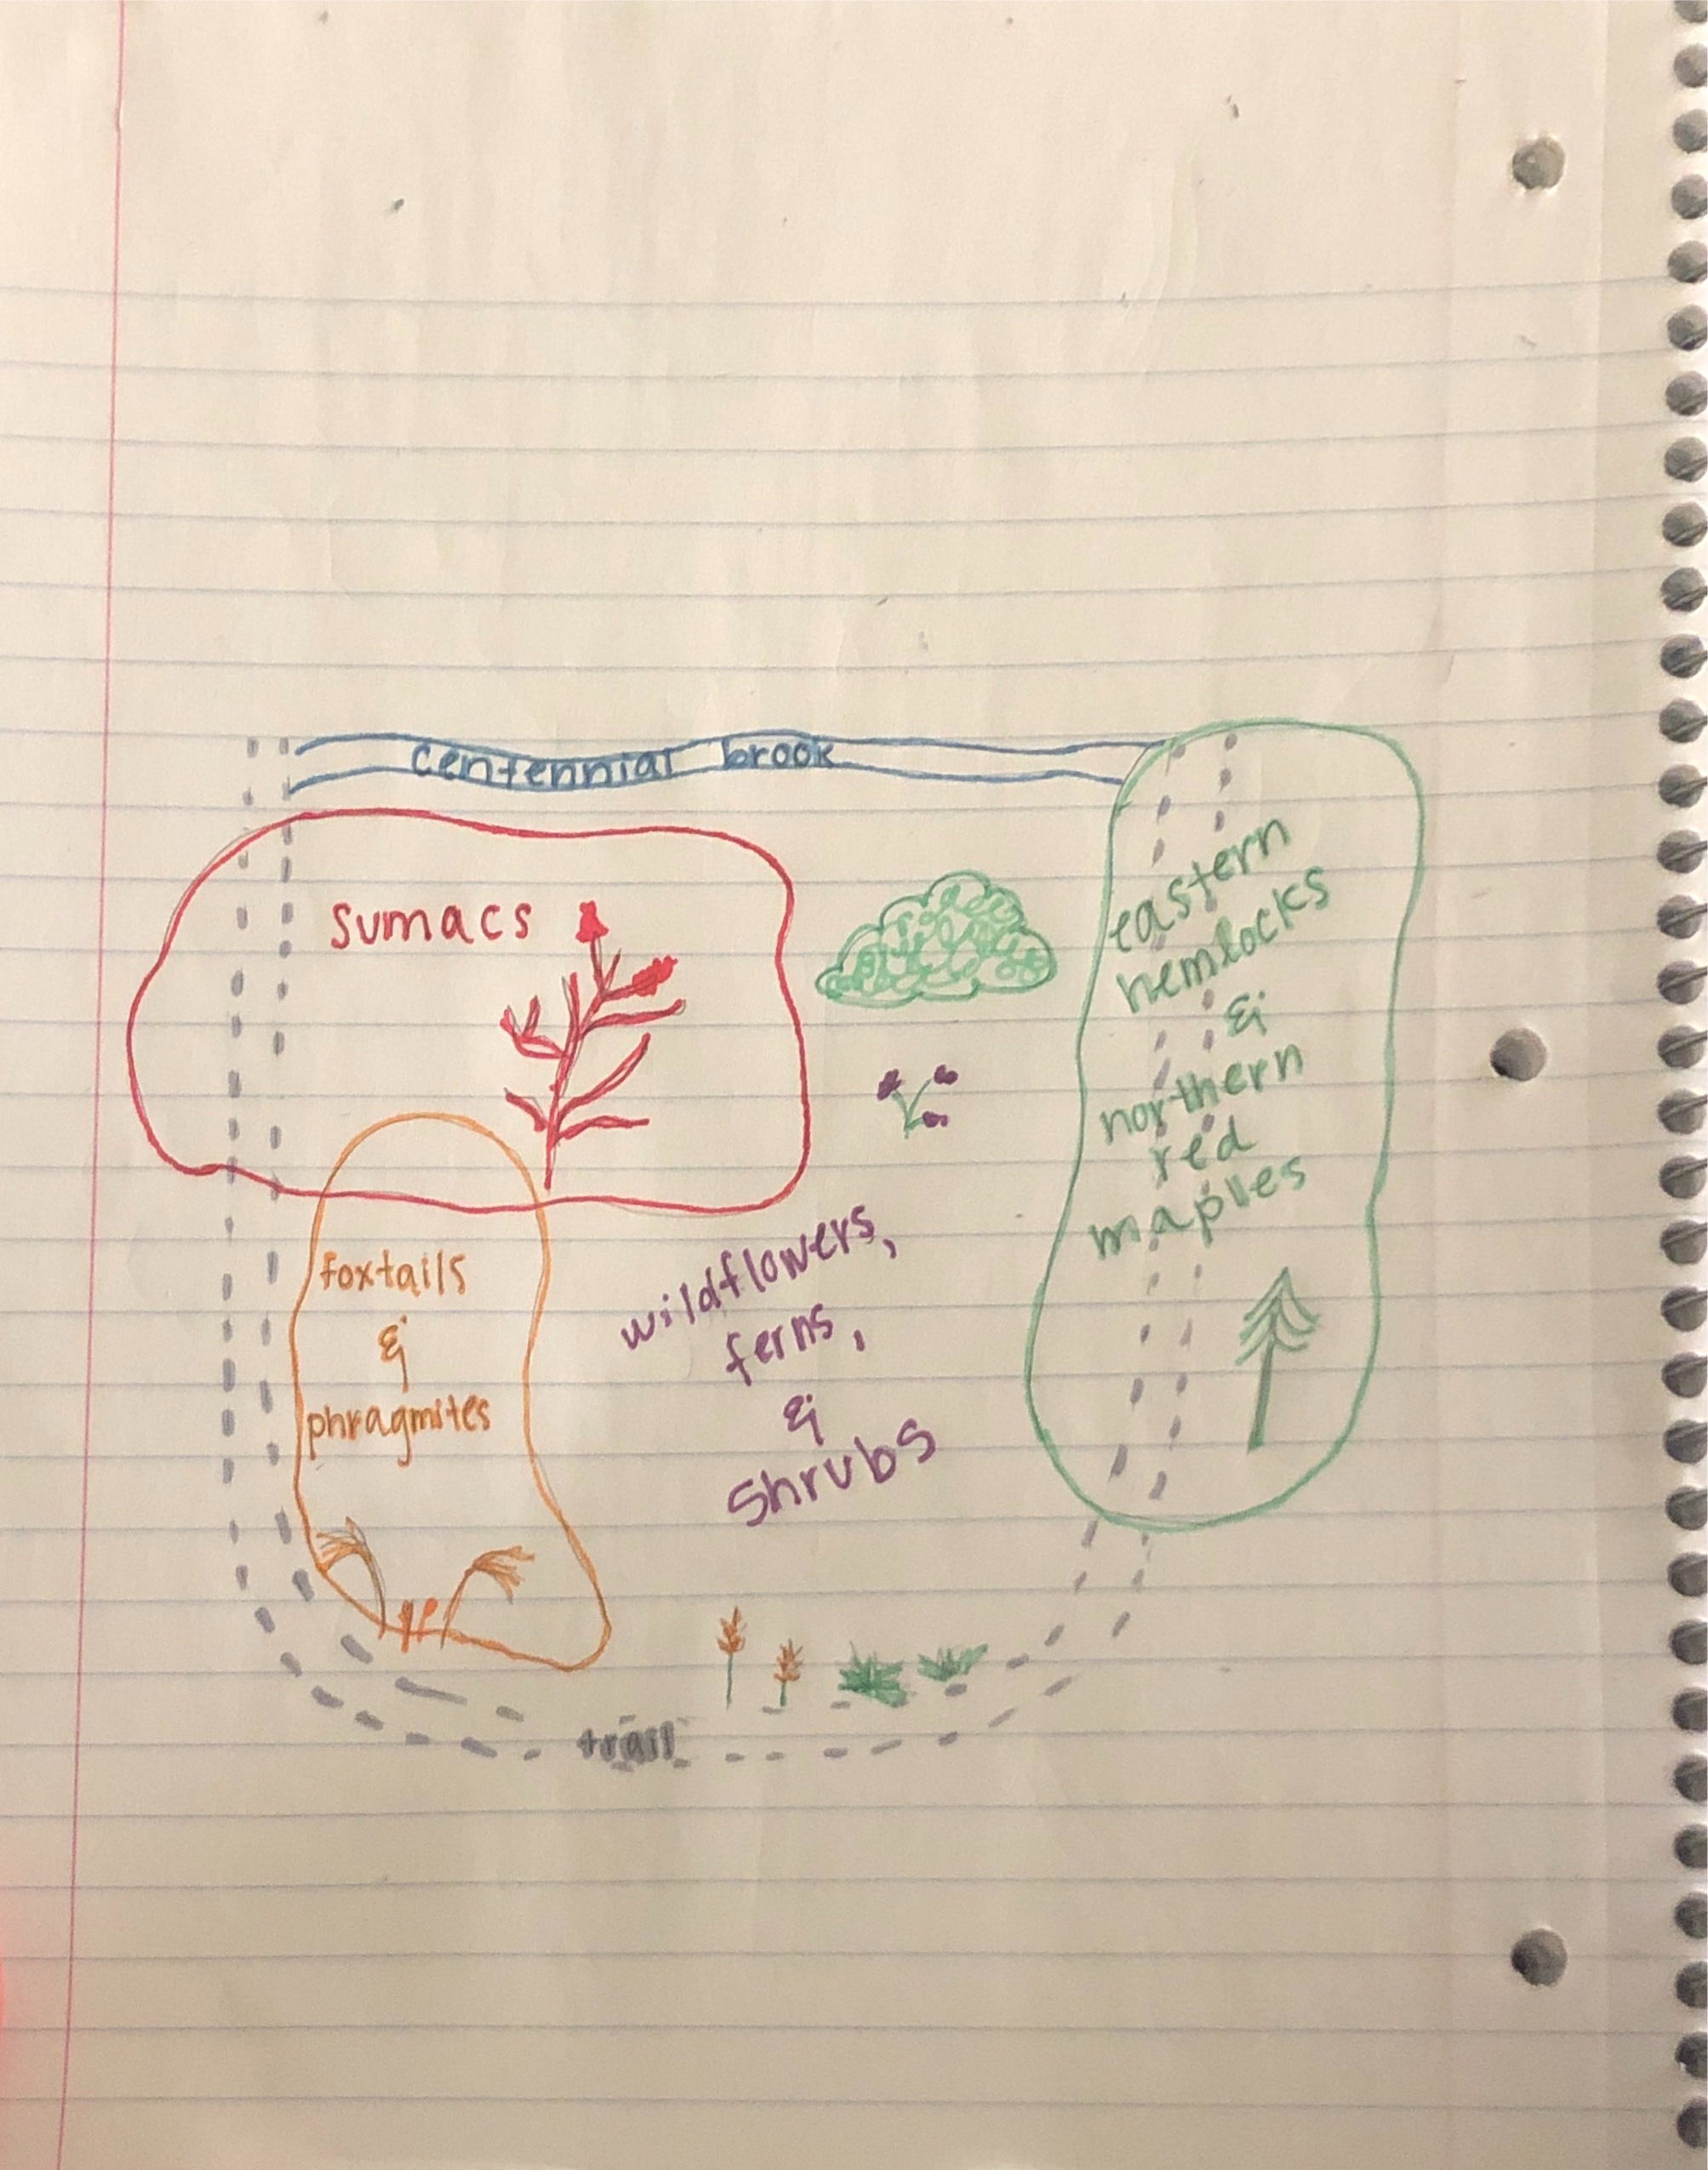 centennial brook
sumacs
eastern
hemlocks
&
northern
red
maples
foxtails
&
phragmites
wildflowers,
ferns,
&
shrubs
trail